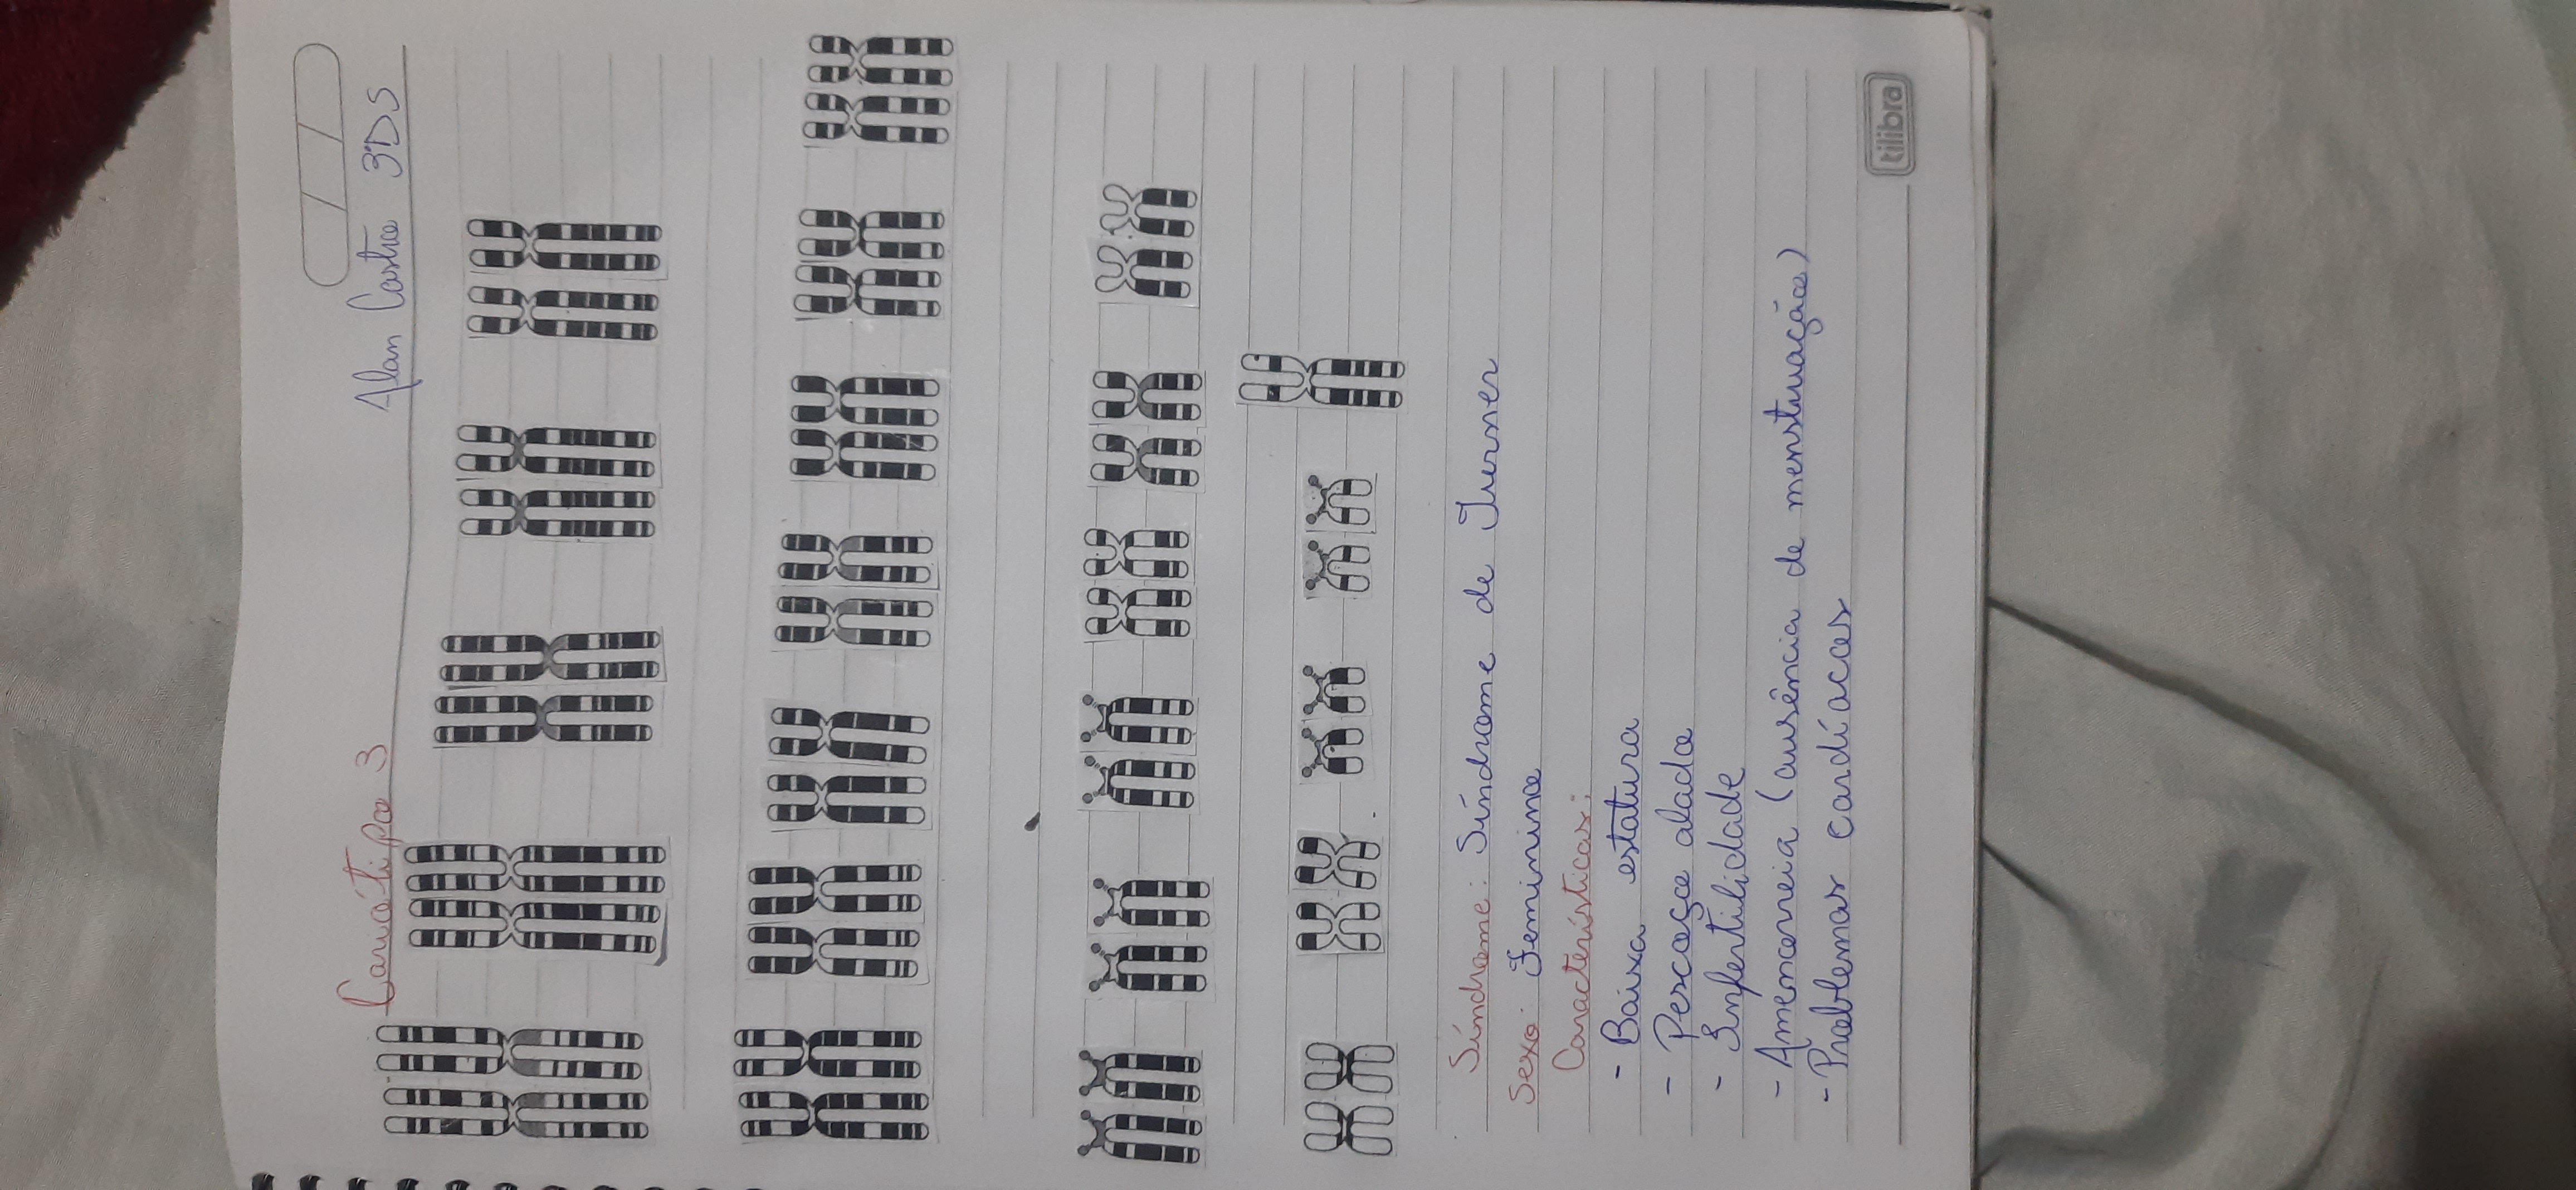 Cariótipo 3
Alan Castro 3°DS
Síndrome: Síndrome de Turner
Sexo: Feminino
Características:
- Baixa estatura
- Pescoço alado
- Infertilidade
- Amenorreia (ausência de menstruação)
- Problemas cardíacos
tilibra